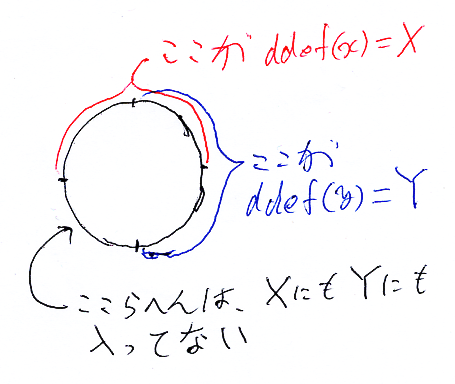 ここが ddef(x)=X
ここが
ddef(y)=Y
ここらへんは、XにもYにも
入ってない